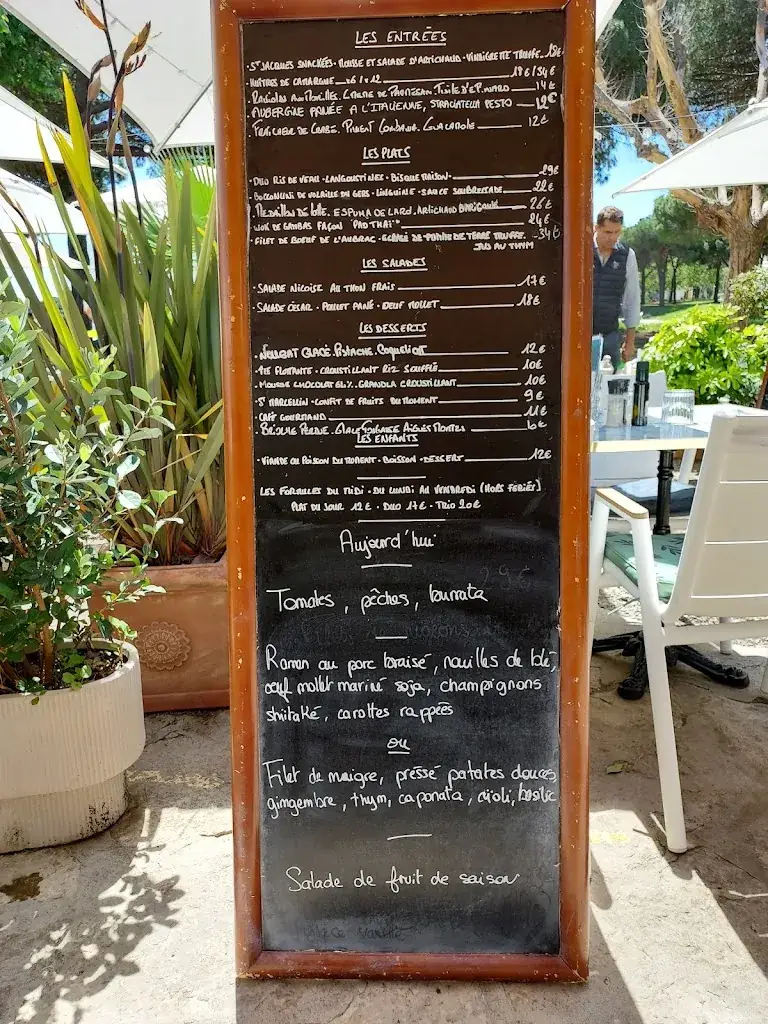 LES ENTRÉES
• ST JACQUES SNACKÉES • MOUSSE ET SALADE D'ARTICHAUD • VINAIGRETTE TRUFFE 18€
• HUÎTRES DE CAMARGUE x6 / x12 18€/34€
• AUBERGINE PANÉE A L'ITALIENNE, STRACIATELLA PESTO 12€
12€
LES PLATS
• DUO RIS DE VEAU • LANGOUSTINES • BISQUE MAISON 29€
• VOLAILLE DU GERS • LINGUINE • SAUCE SOUBRESSADE 22€
• MEDAILLON DE LOTTE. ESPUMA DE LARD. ARTICHAUD BARIGOULE 26€
• WOK DE GAMBAS FAÇON "PAD THAÏ" 24€
• FILET DE BOEUF DE L'AUBRAC • ECRASÉ DE POMME DE TERRE TRUFFE 34€
JUS AU THYM
LES SALADES
• SALADE NICOISE AU THON FRAIS 17€
• SALADE CÉSAR • POULET PANÉ • OEUF MOLLET 18€
LES DESSERTS
• NOUGAT GLACÉ. PISTACHE. COQUELICOT 12€
• ILE FLOTTANTE • CROUSTILLANT RIZ SOUFFLÉ 10€
• MOUSSE CHOCOLAT 64% • GRANOLA CROUSTILLANT 10€
• ST MARCELLIN • CONFIT DE FRUITS DU MOMENT 9€
• CAFÉ GOURMAND 11€
• BRIOCHE PERDUE • AIGUES MORTES
LES ENFANTS
• VIANDE OU POISON DU MOMENT • BOISSON • DESSERT 12€
LES FORMULES DU MIDI • DU LUNDI AU VENDREDI (HORS FERIÉS)
PLAT DU JOUR 12€ • DUO 17€ • TRIO 20€
Aujourd'hui
Tomates, pêches, burrata
Ramen au porc braisé, nouilles de blé,
oeuf mollet mariné soja, champignons
shiitaké, carottes rappées
ou
Filet de maigre, pressé patates douces,
gingembre, thym, caponata, aïoli, basilic
Salade de fruit de saison